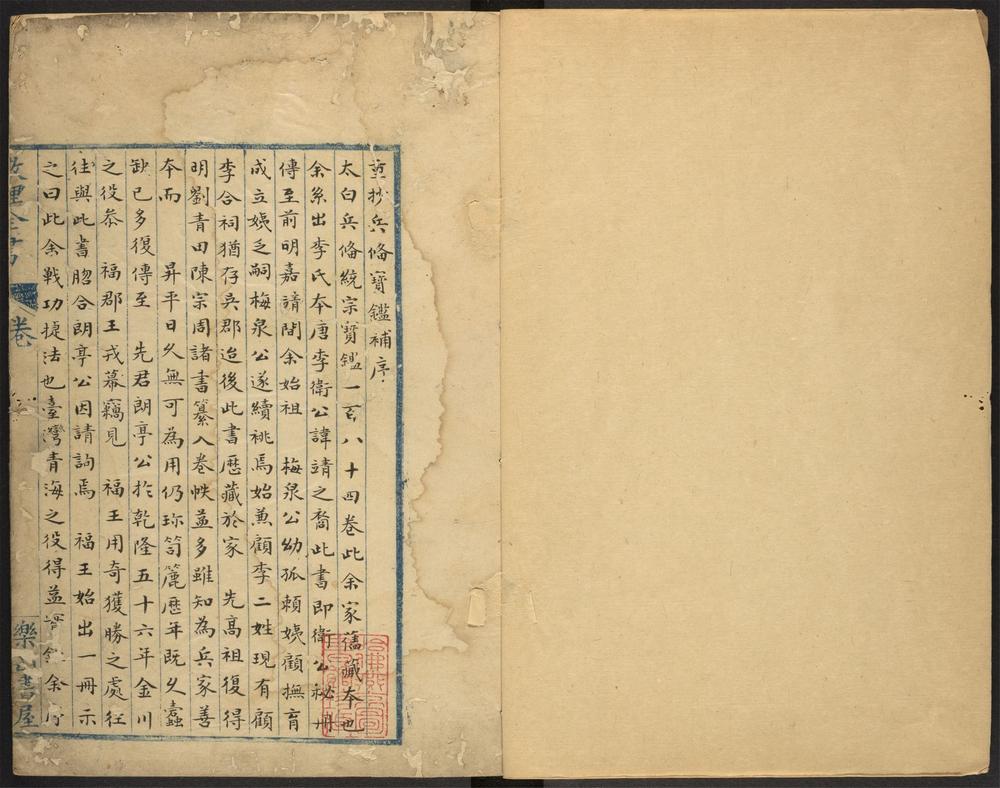 重抄兵備寶鑑補序
太白兵備統宗寶鑑一百八十四卷此余家舊藏本也
余系出李氏本唐李衛公諱靖之裔此書即衛公秘冊
傳至前明嘉靖間余始祖 梅泉公幼孤賴姨顧撫育
成立姨乏嗣梅泉公遂續祧焉始兼顧李二姓現有顧
李合祠猶存吳郡迨後此書歷藏於家 先高祖復得
明劉青田陳宗周諸書纂入卷帙益多雖知為兵家善
本而 昇平日久無可為用仍珍笥簏歷年既久蠹
缺已多復傳至 先君朗亭公於乾隆五十六年金川
之役叅 福郡王戎幕竊見 福王用奇獲勝之處往
往與此書脗合朗亭公因請詢焉 福王始出一冊示
之曰此余戰功捷法也臺灣青海之役得益 余
卷
樂 書屋